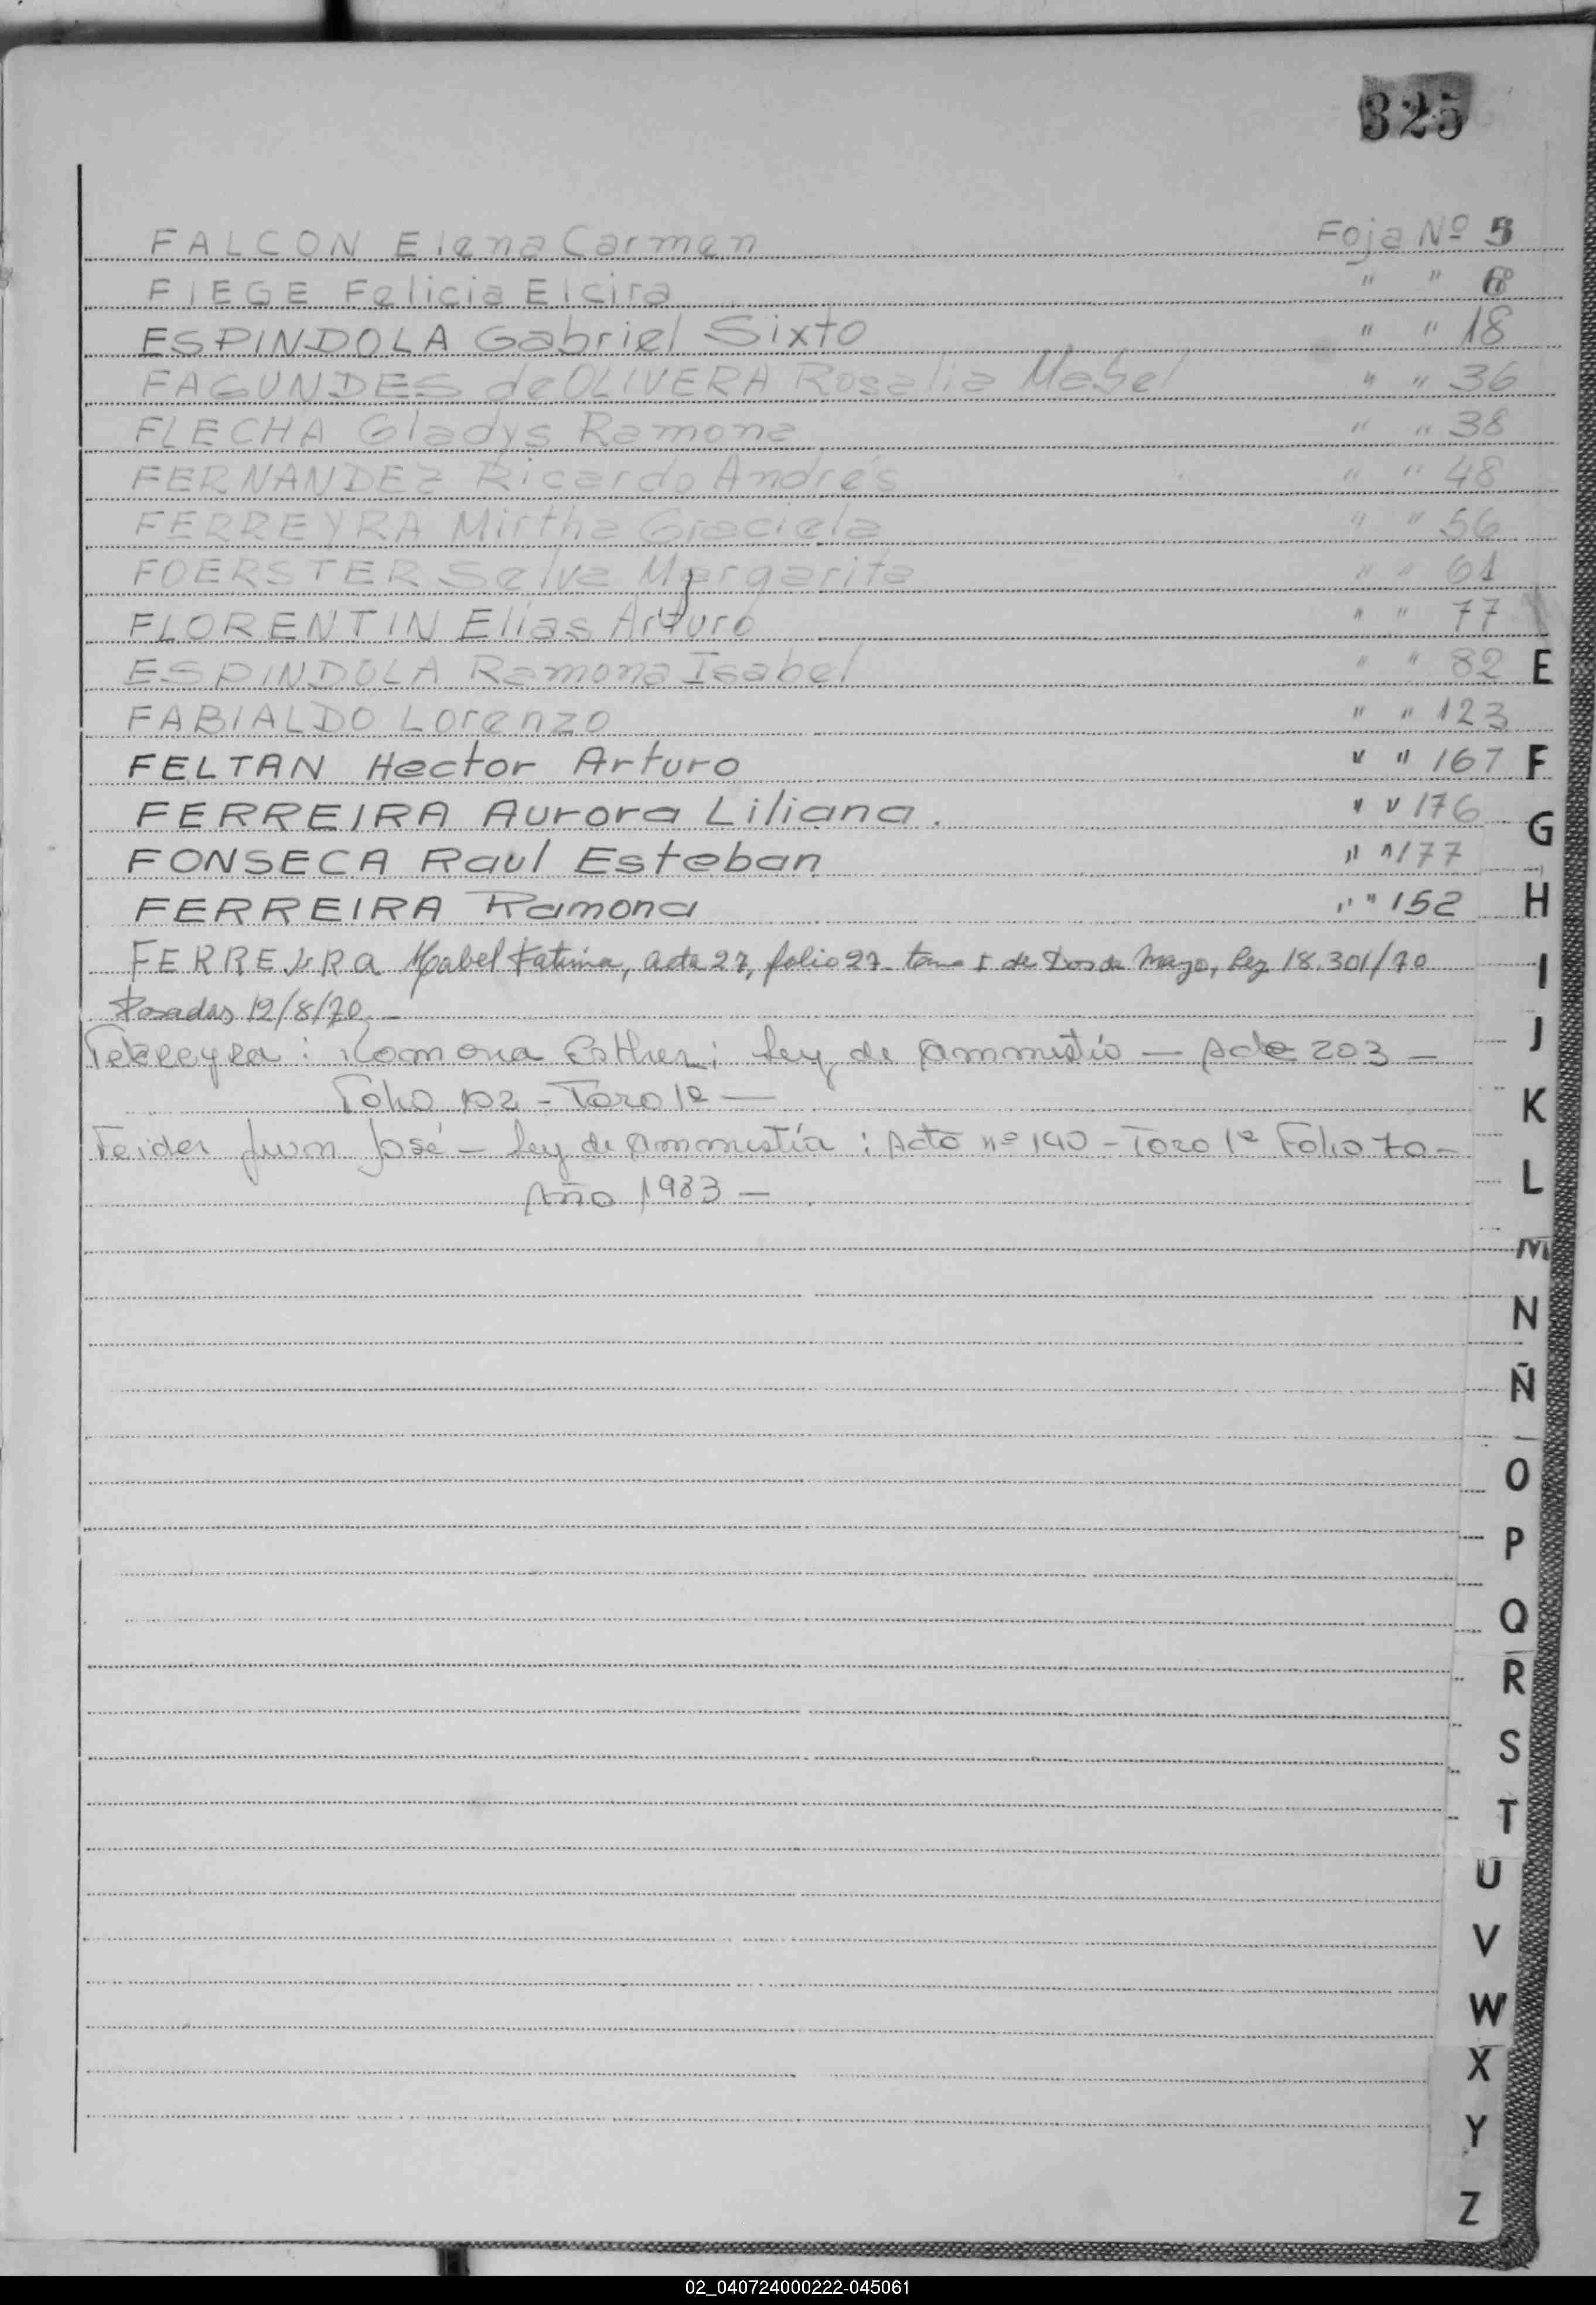 325
FALCON Elena Carmen Foja Nº 5
FIEGE Felicia Elcira " " 6
ESPINDOLA Gabriel Sixto " " 18
FAGUNDES de OLIVERA Rosalia Mabel " " 36
FLECHA Gladys Ramona " " 38
FERNANDEZ Ricardo Andrés " " 48
FERREYRA Mirtha Graciela " " 56
FOERSTER Selva Margarita " " 61
FLORENTIN Elías Arturo " " 77
ESPINDOLA Ramona Isabel " " 82
FABIALDO Lorenzo " " 123
FELTAN Hector Arturo " " 167
FERREIRA Aurora Liliana. " " 176
FONSECA Raul Esteban " " 177
FERREIRA Ramona " " 152
FERREYRA Mabel Fatima, acta 27, folio 27 tomo I de Dos de Mayo, Ley 18.301/70
Posadas 12/8/70 -
Ferreyra: Ramona Esther: Ley de Ammistio — Acta 203 -
Folio 102 - Tomo 1º —
Feider Juan José - Ley de Ammistía : Acta nº 140 - Tomo 1º Folio 70 -
Año 1983 —
E
F
G
H
I
J
K
L
M
N
Ñ
O
P
Q
R
S
T
U
V
W
X
Y
Z
02_040724000222-045061